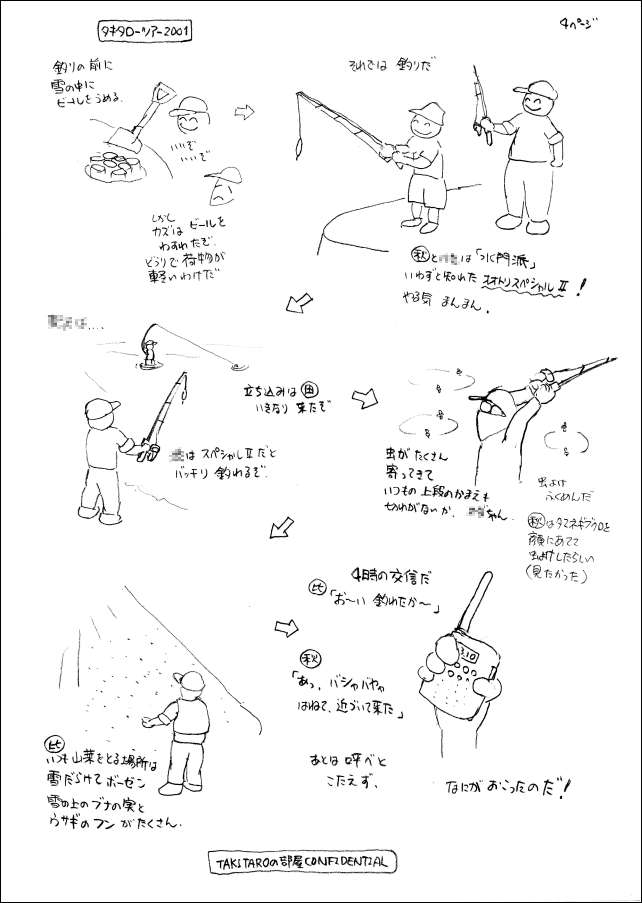 タキタローツアー2001
4ページ
釣りの前に
雪の中に
ビールをうめる.
いいぞ
いいぞ
しかし
カズは ビールを
わすれたぞ.
どうりで 荷物が
軽いわけだ
それでは 釣りだ
秋と は「水門派」
いわずと知れた オオトリスペシャルⅡ!
やる気 まんまん.
は....
立ち込みは 田
いきなり 来たぞ
は スペシャルⅡだと
バッチリ 釣れるぞ.
虫がたくさん
寄ってきて
いつもの上段のかまえも
切れがないか. ちゃん.
虫よけ
ふくめんだ
秋はタマネギブクロを
顔にあてて
虫よけしたらしい
(見たかった)
比
いつも山菜をとる場所は
雪だらけで ボーゼン
雪の上のブナの実と
ウサギのフンがたくさん.
4時の交信だ
比「お〜い 釣れたか〜」
秋
「あっ、バシャバシャ
はねて、近づいて来た」
あとは 呼べど
こたえず.
なにが おこったのだ!
3.10
TAKITAROの部屋CONFIDENTIAL